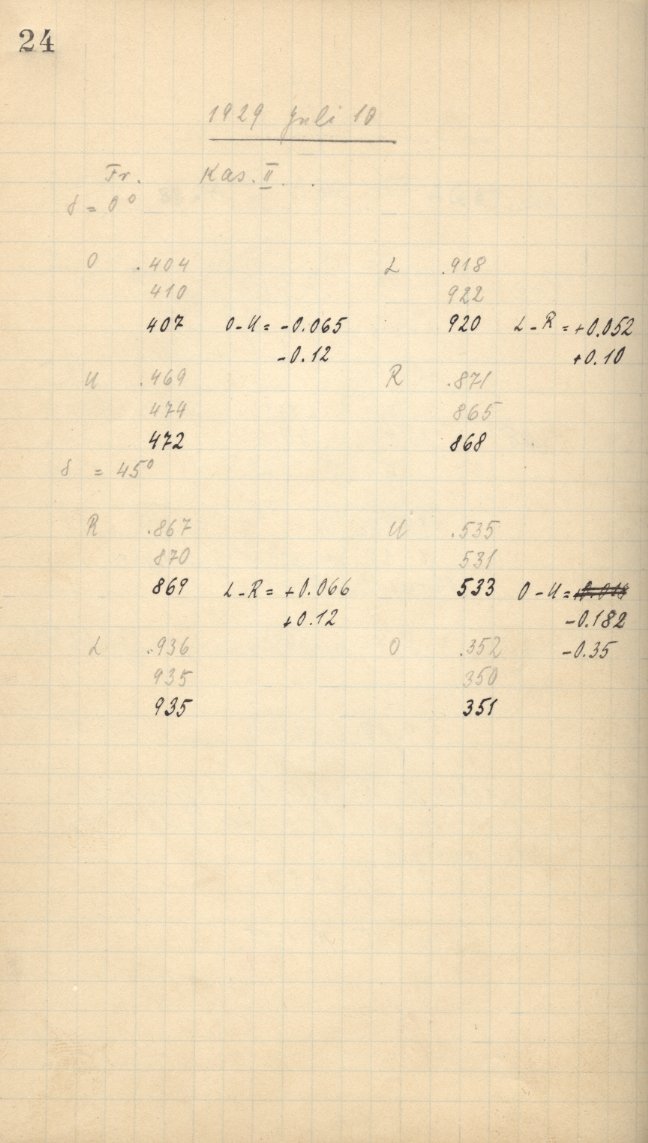 24
1929 Juli 10
Fr. Kas. II.
δ = 0°
O .404 L .918
410 922
407 O-U = -0.065 920 L-R = +0.052
-0.12 +0.10
U .469 R .871
474 865
472 868
δ = 45°
R .867 U .535
870 531
869 L-R = +0.066 533 O-U =
+0.12 -0.182
L .936 O .352 -0.35
935 350
935 351